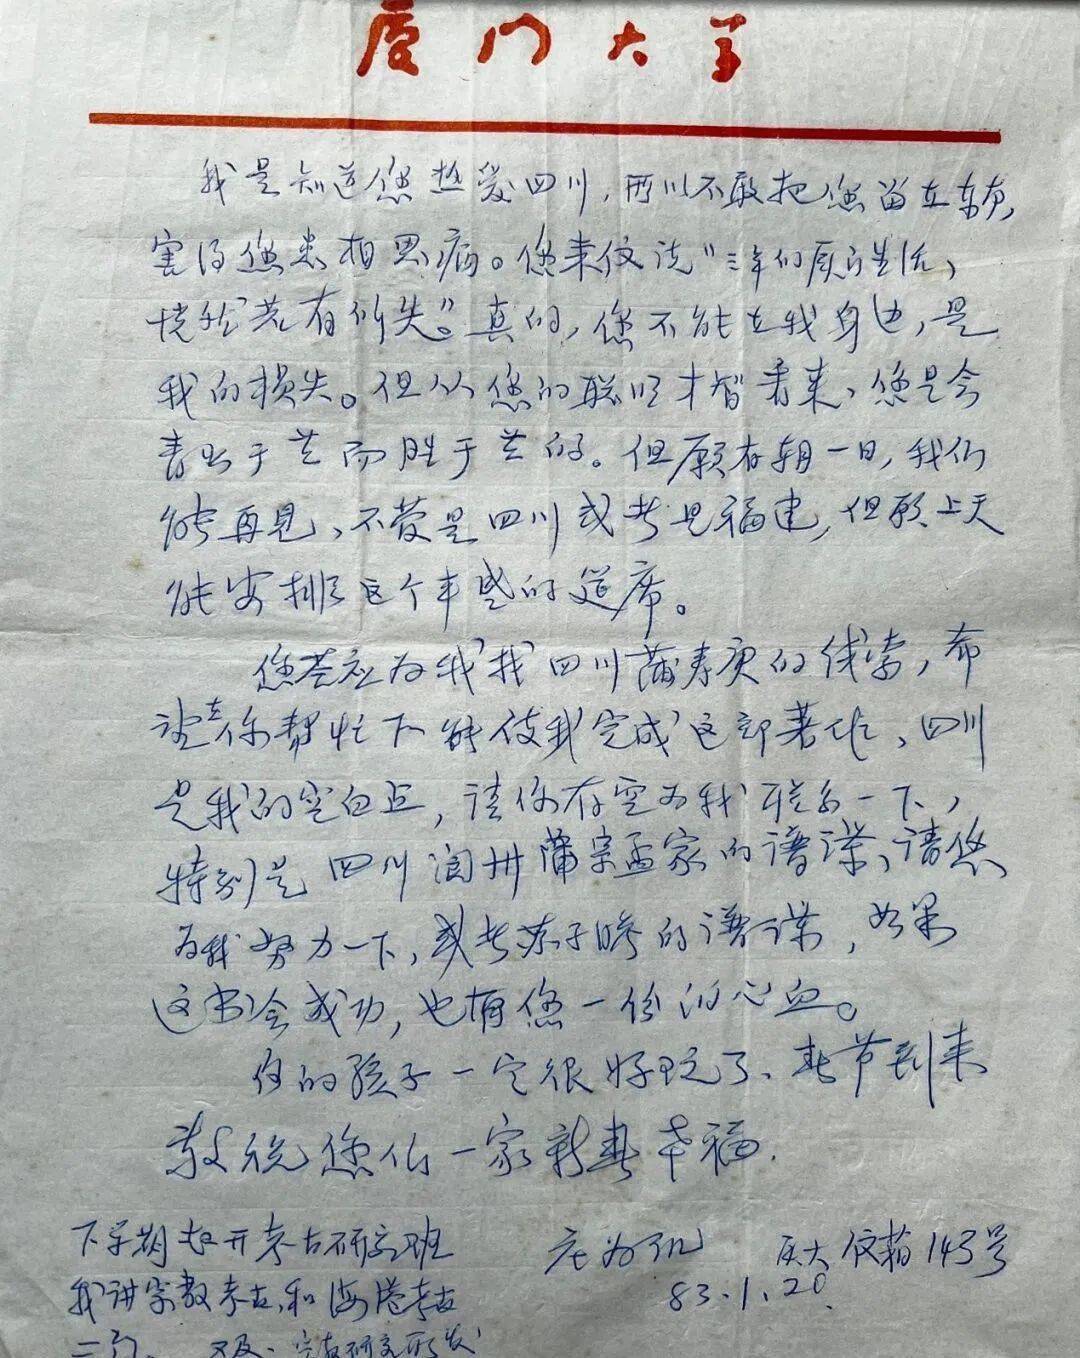 厦门大学
我是知道您热爱四川，所以不敢把您留在东页，
害得您患相思病。您来信说“三年的厦门生活，
恍然若有所失”。真的，您不能在我身边，是
我的损失。但从您的聪明才智看来，您是会
青出于兰而胜于兰的。但愿有朝一日，我们
能再见，不管是四川或者是福建，但愿上天
能安排这个丰盛的筵席。
您答应为我找四川蒲寿庚的线索，希
望在你帮忙下能使我完成这部著作，四川
是我的空白点，请你有空为我联系一下，
特别是四川阆州蒲宗孟家的谱牒，请您
为我努力一下，或者苏子瞻的谱牒，如果
这书会成功，也有您一份的心血。
你的孩子一定很好玩了、春节到来
敬祝您们一家新春幸福.
下学期起开考古研究班
我讲宗教考古，和海港考古
二门、
庄为玑 厦大信箱143号
83.1.20.